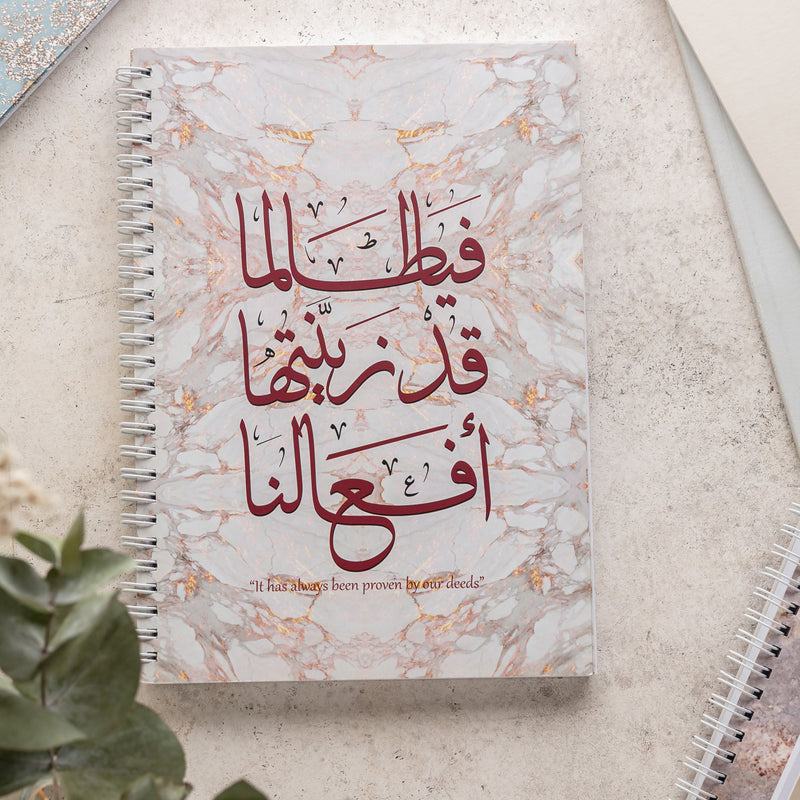 فيا طالما
قدْ زيَّنتها
أفعالنا
"It has always been proven by our deeds"